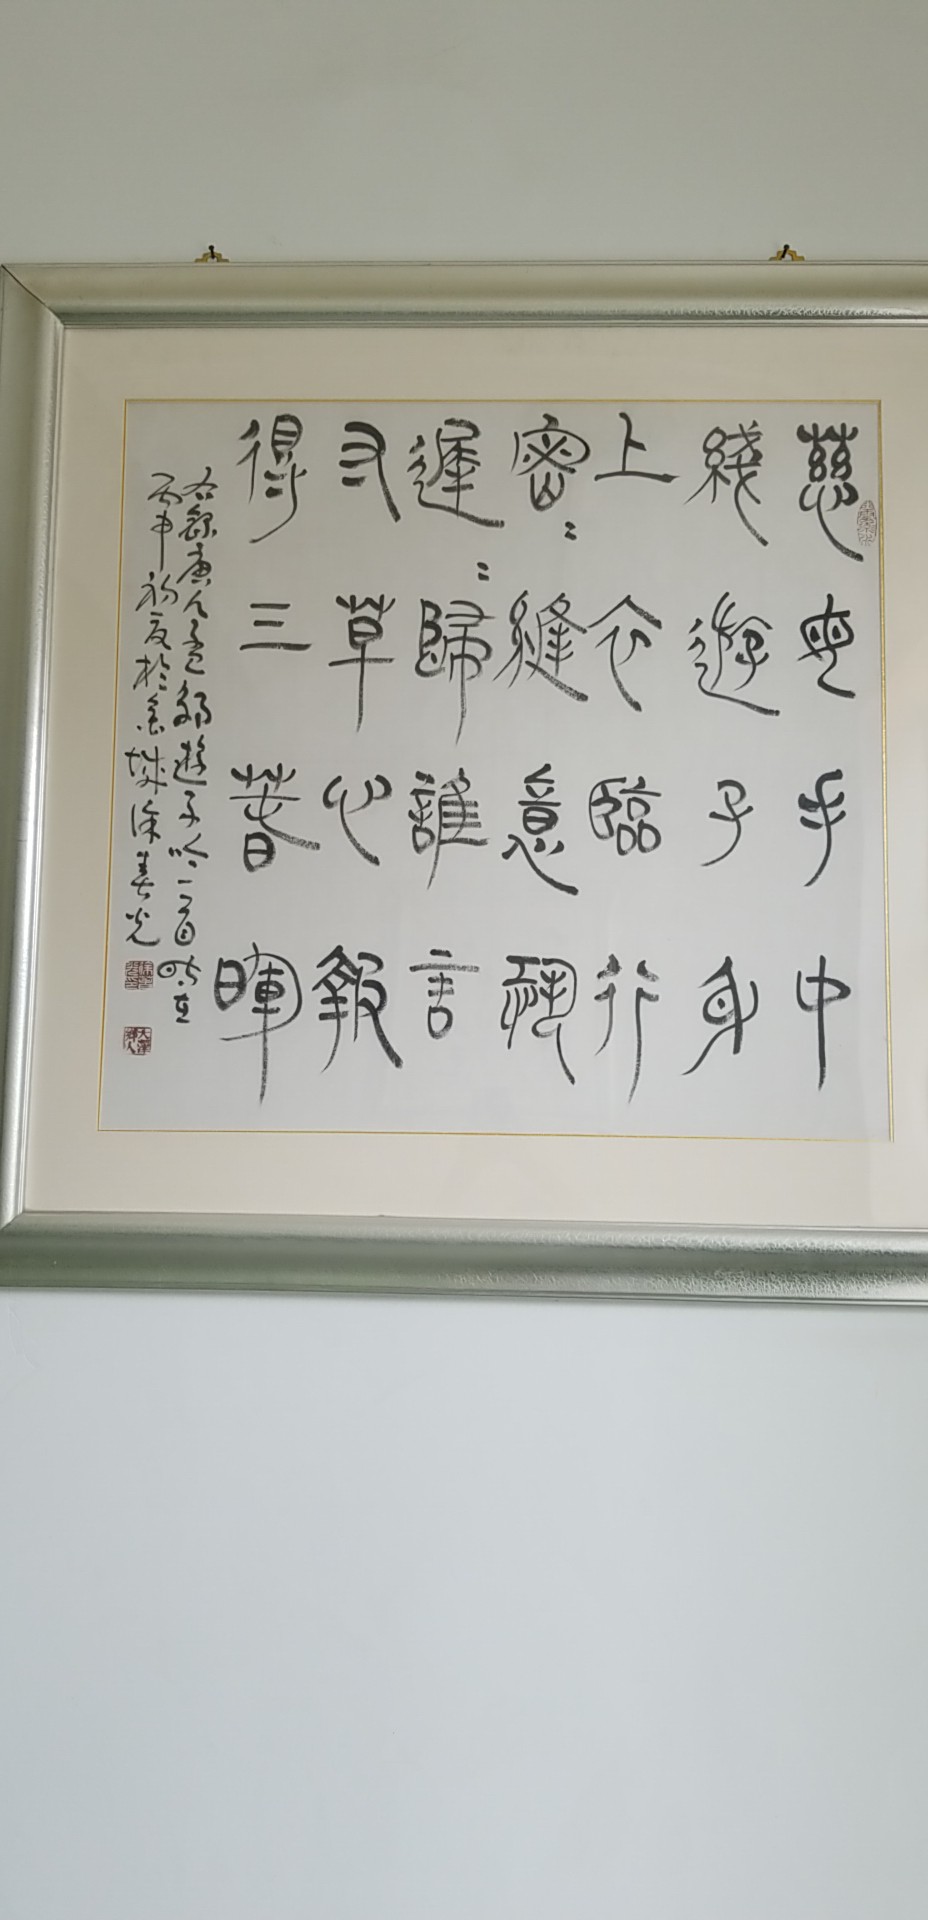 慈母手中
綫遊子身
上衣臨行
密〻縫意恐
遲〻歸誰言
寸草心報
得三春暉
右錄唐人孟郊遊子吟一首時在
丙申初夏於金城徐春光